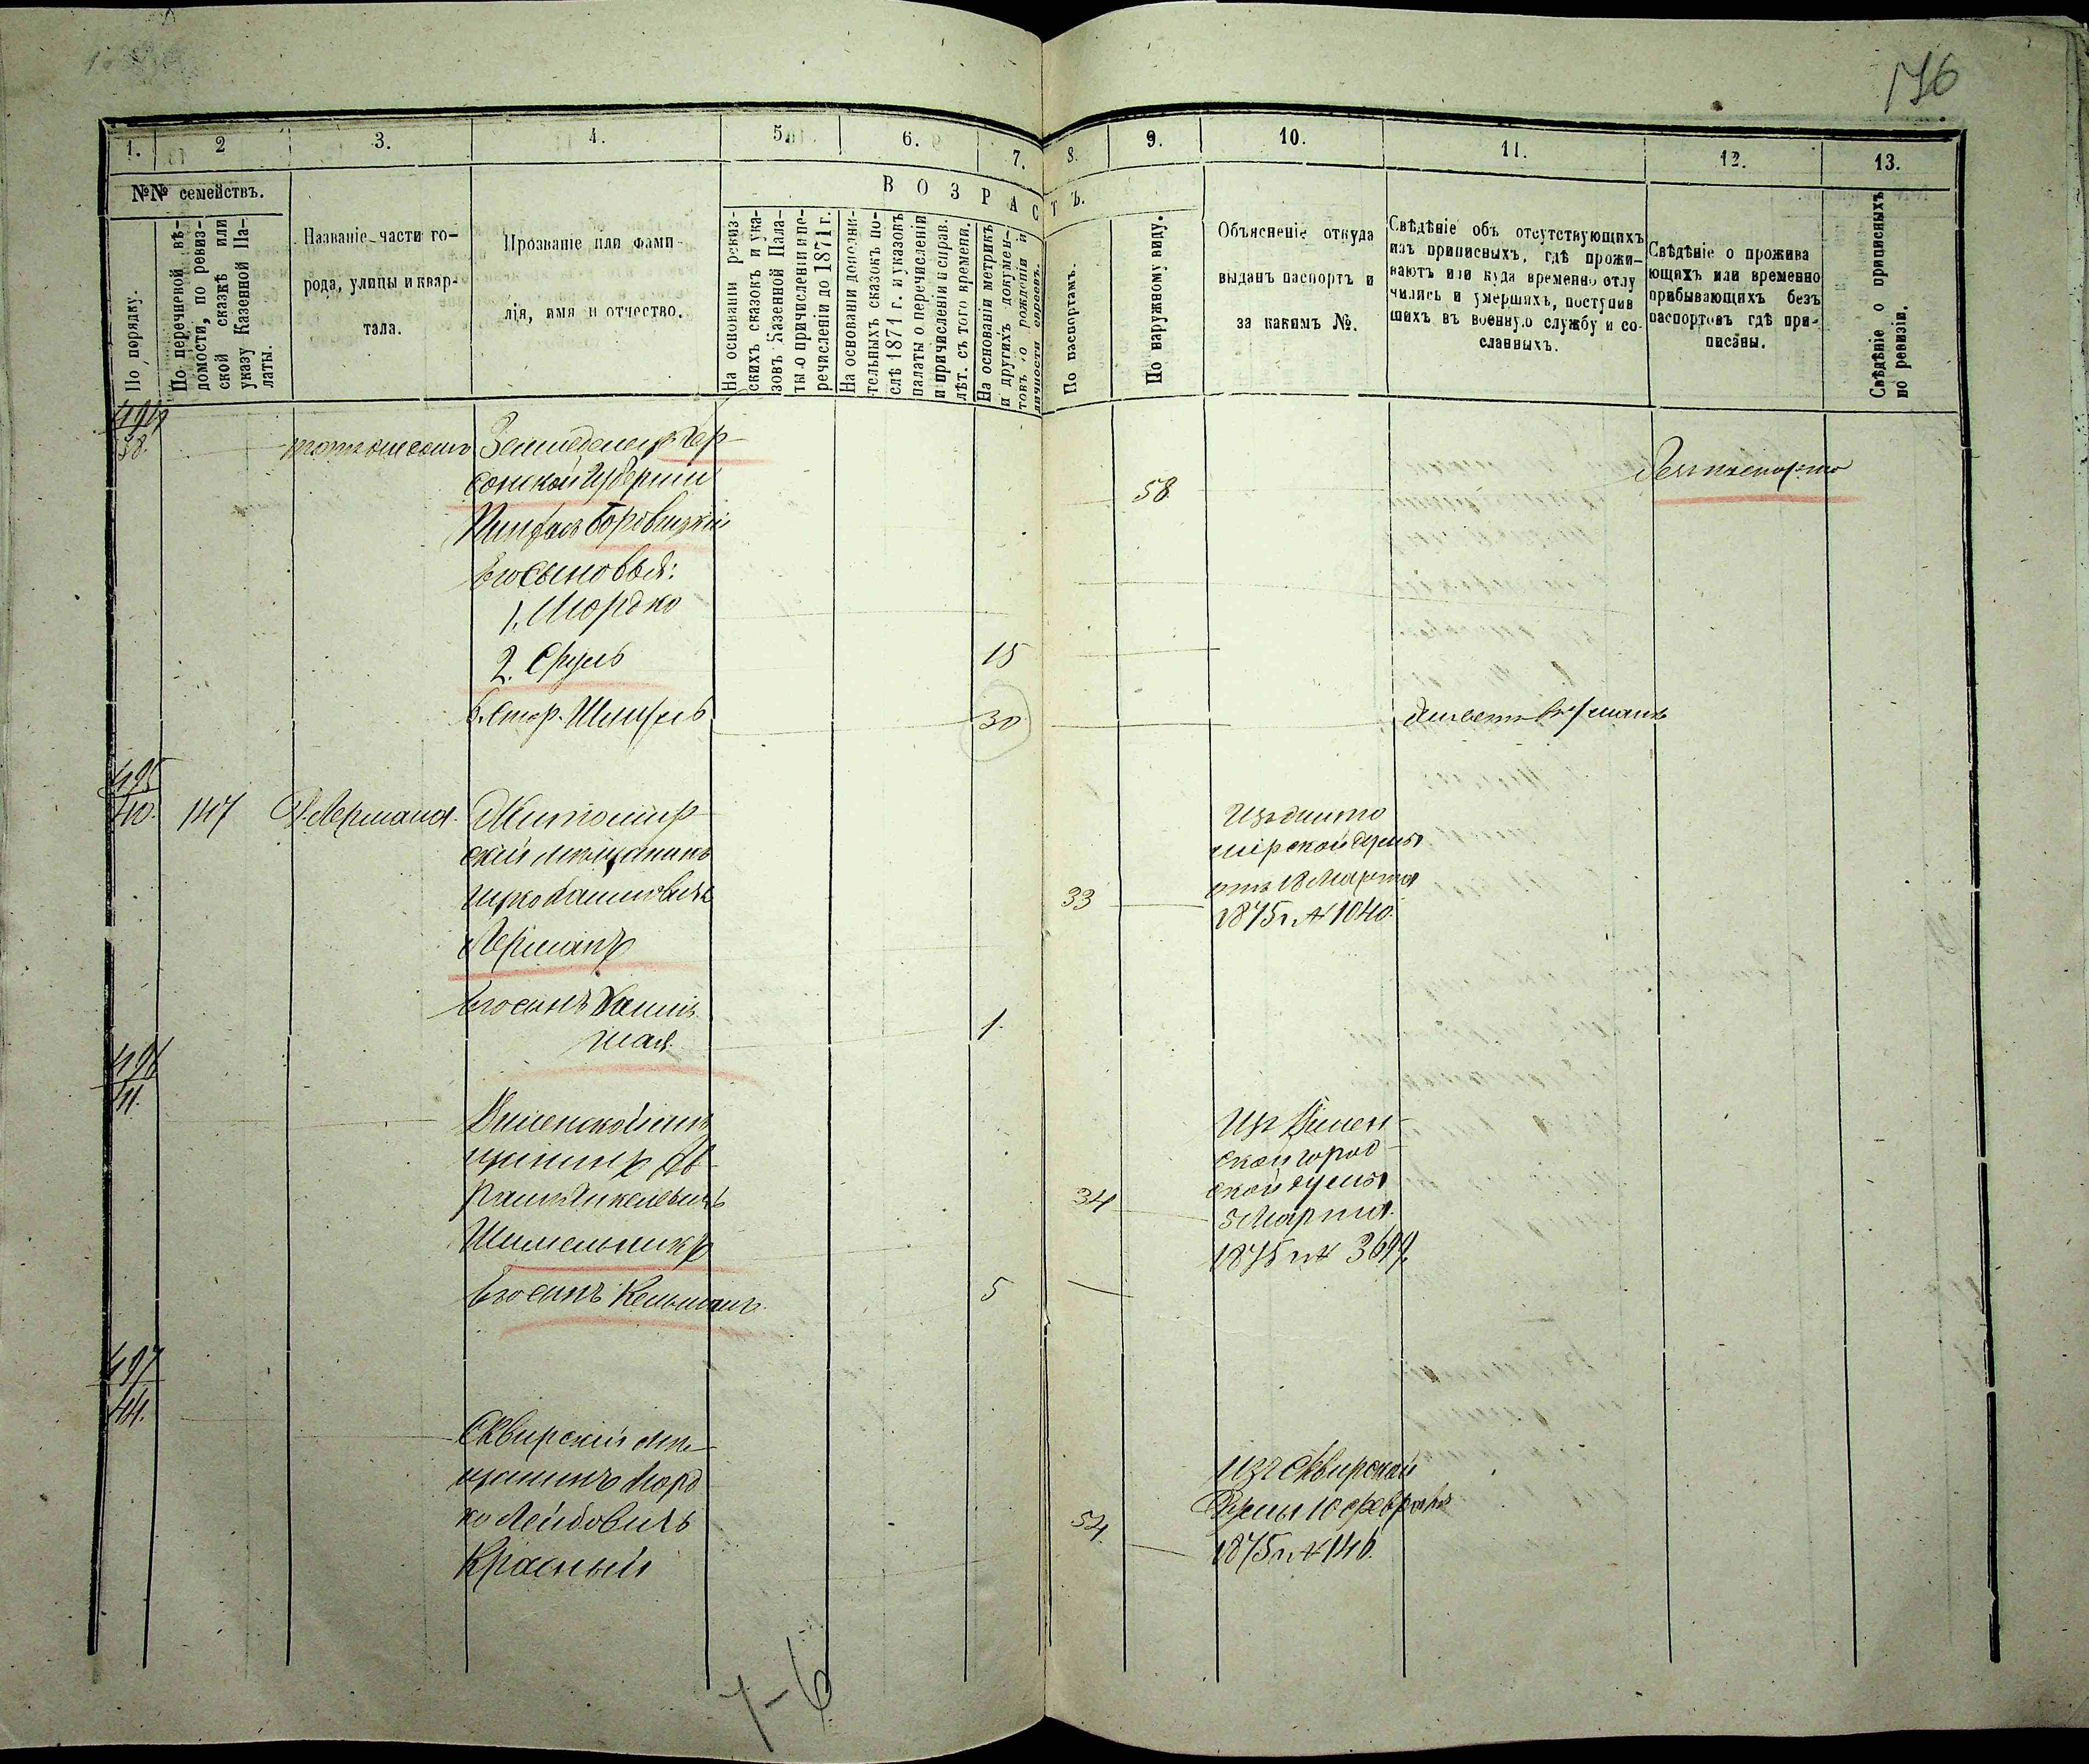 176
1. 2 3. 4. 5. 6. 7. 8. 9. 10. 11. 12. 13.
№№ семействъ.
ВОЗРАСТЪ.
По порядку.
По перечневой вѣ-
домости, по ревиз-
ской сказкѣ или
указу Казенной Па-
латы.
Названіе части го-
рода, улицы и квар-
тала.
Прозваніе или фами-
лія, имя и отчество.
На основаніи ревиз-
скихъ сказокъ и ука-
зовъ Казенной Пала-
ты о причисленіи и пе-
речисленіи до 1871 г.
На основаніи дополни-
тельныхъ сказокъ по-
слѣ 1871 г. и указовъ
палаты о перечисленіи
и причисленіи и справ.
лѣт. съ того времени.
На основаніи метрикъ
и другихъ докумен-
товъ о рожденіи и
личности евреевъ.
По паспортамъ.
По наружному виду.
Объясненіе откуда
выданъ паспортъ и
за какимъ №.
Свѣдѣніе объ отсутствующихъ
изъ приписныхъ, гдѣ прожи-
ваютъ или куда временно отлу
чились и умершихъ, поступив
шихъ въ военную службу и со-
сланныхъ.
Свѣдѣніе о прожива
ющихъ или временно
прибывающихъ безъ
паспортовъ гдѣ при-
писаны.
Свѣдѣніе о приписныхъ
по ревизіи.
494
38.
Земледелецъ Хер-
сонской Губерніи
Боровицкій
58
Безъ паспорта
Его сыновья:
1. Мордко
2. Сруль
15
30
495
40. 147 Д. Лермана.
Житомир-
скій мѣщанинъ
Лерманъ
33
Изъ Жито
мірской думы
отъ 18 Марта
1875 г. № 1040.
Его сынъ Хаимъ
1.
496
41.
Виленской мѣ
щанинъ Аб-
рамъ
Шмельникъ
34
Изъ Вилен-
ской город-
ской думы
5 Марта
1875 г. № 3699.
Его сынъ Кельманъ
5
497
44.
Сквирскій мѣ-
щанинъ Морд
ко Лейбовичъ
Красный
54.
Изъ Сквирской
Думы 10 февраля
1875 г. № 146.
7-6